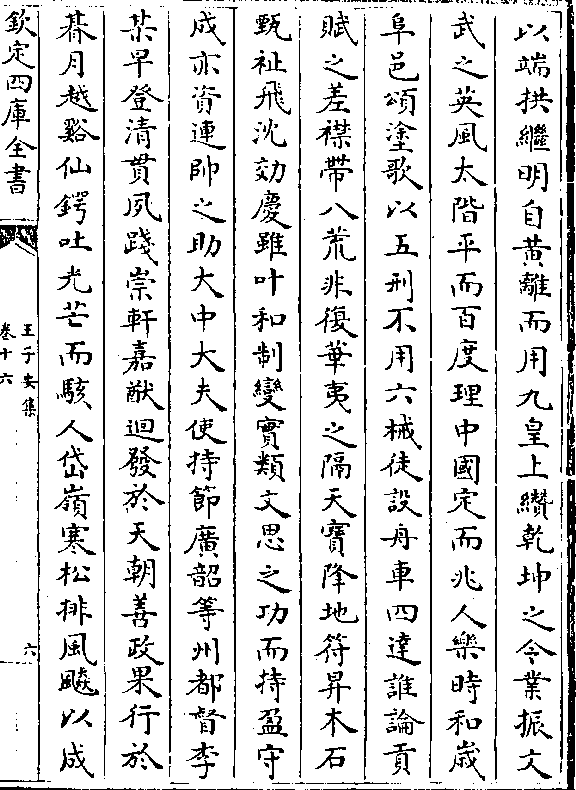 以端拱繼明自黃離而用九皇上纘乾坤之令業振文
武之英風太階平而百度理中國定而兆人樂時和歲
阜邑頌塗歌以五刑不用六械徒設舟車四達誰論貢
賦之差襟帶八荒非復華夷之隔天寶降地符昇木石
甄祉飛沈効慶雖叶和制變實類文思之功而持盈守
成亦資連帥之助大中大夫使持節廣韶等州都督李
某早登清貫夙踐崇軒嘉猷迴發於天朝善政果行於
朞月越谿仙鍔吐光芒而駭人岱嶺寒松排風飇以成
欽定四庫全書
王子安集
卷十六
六